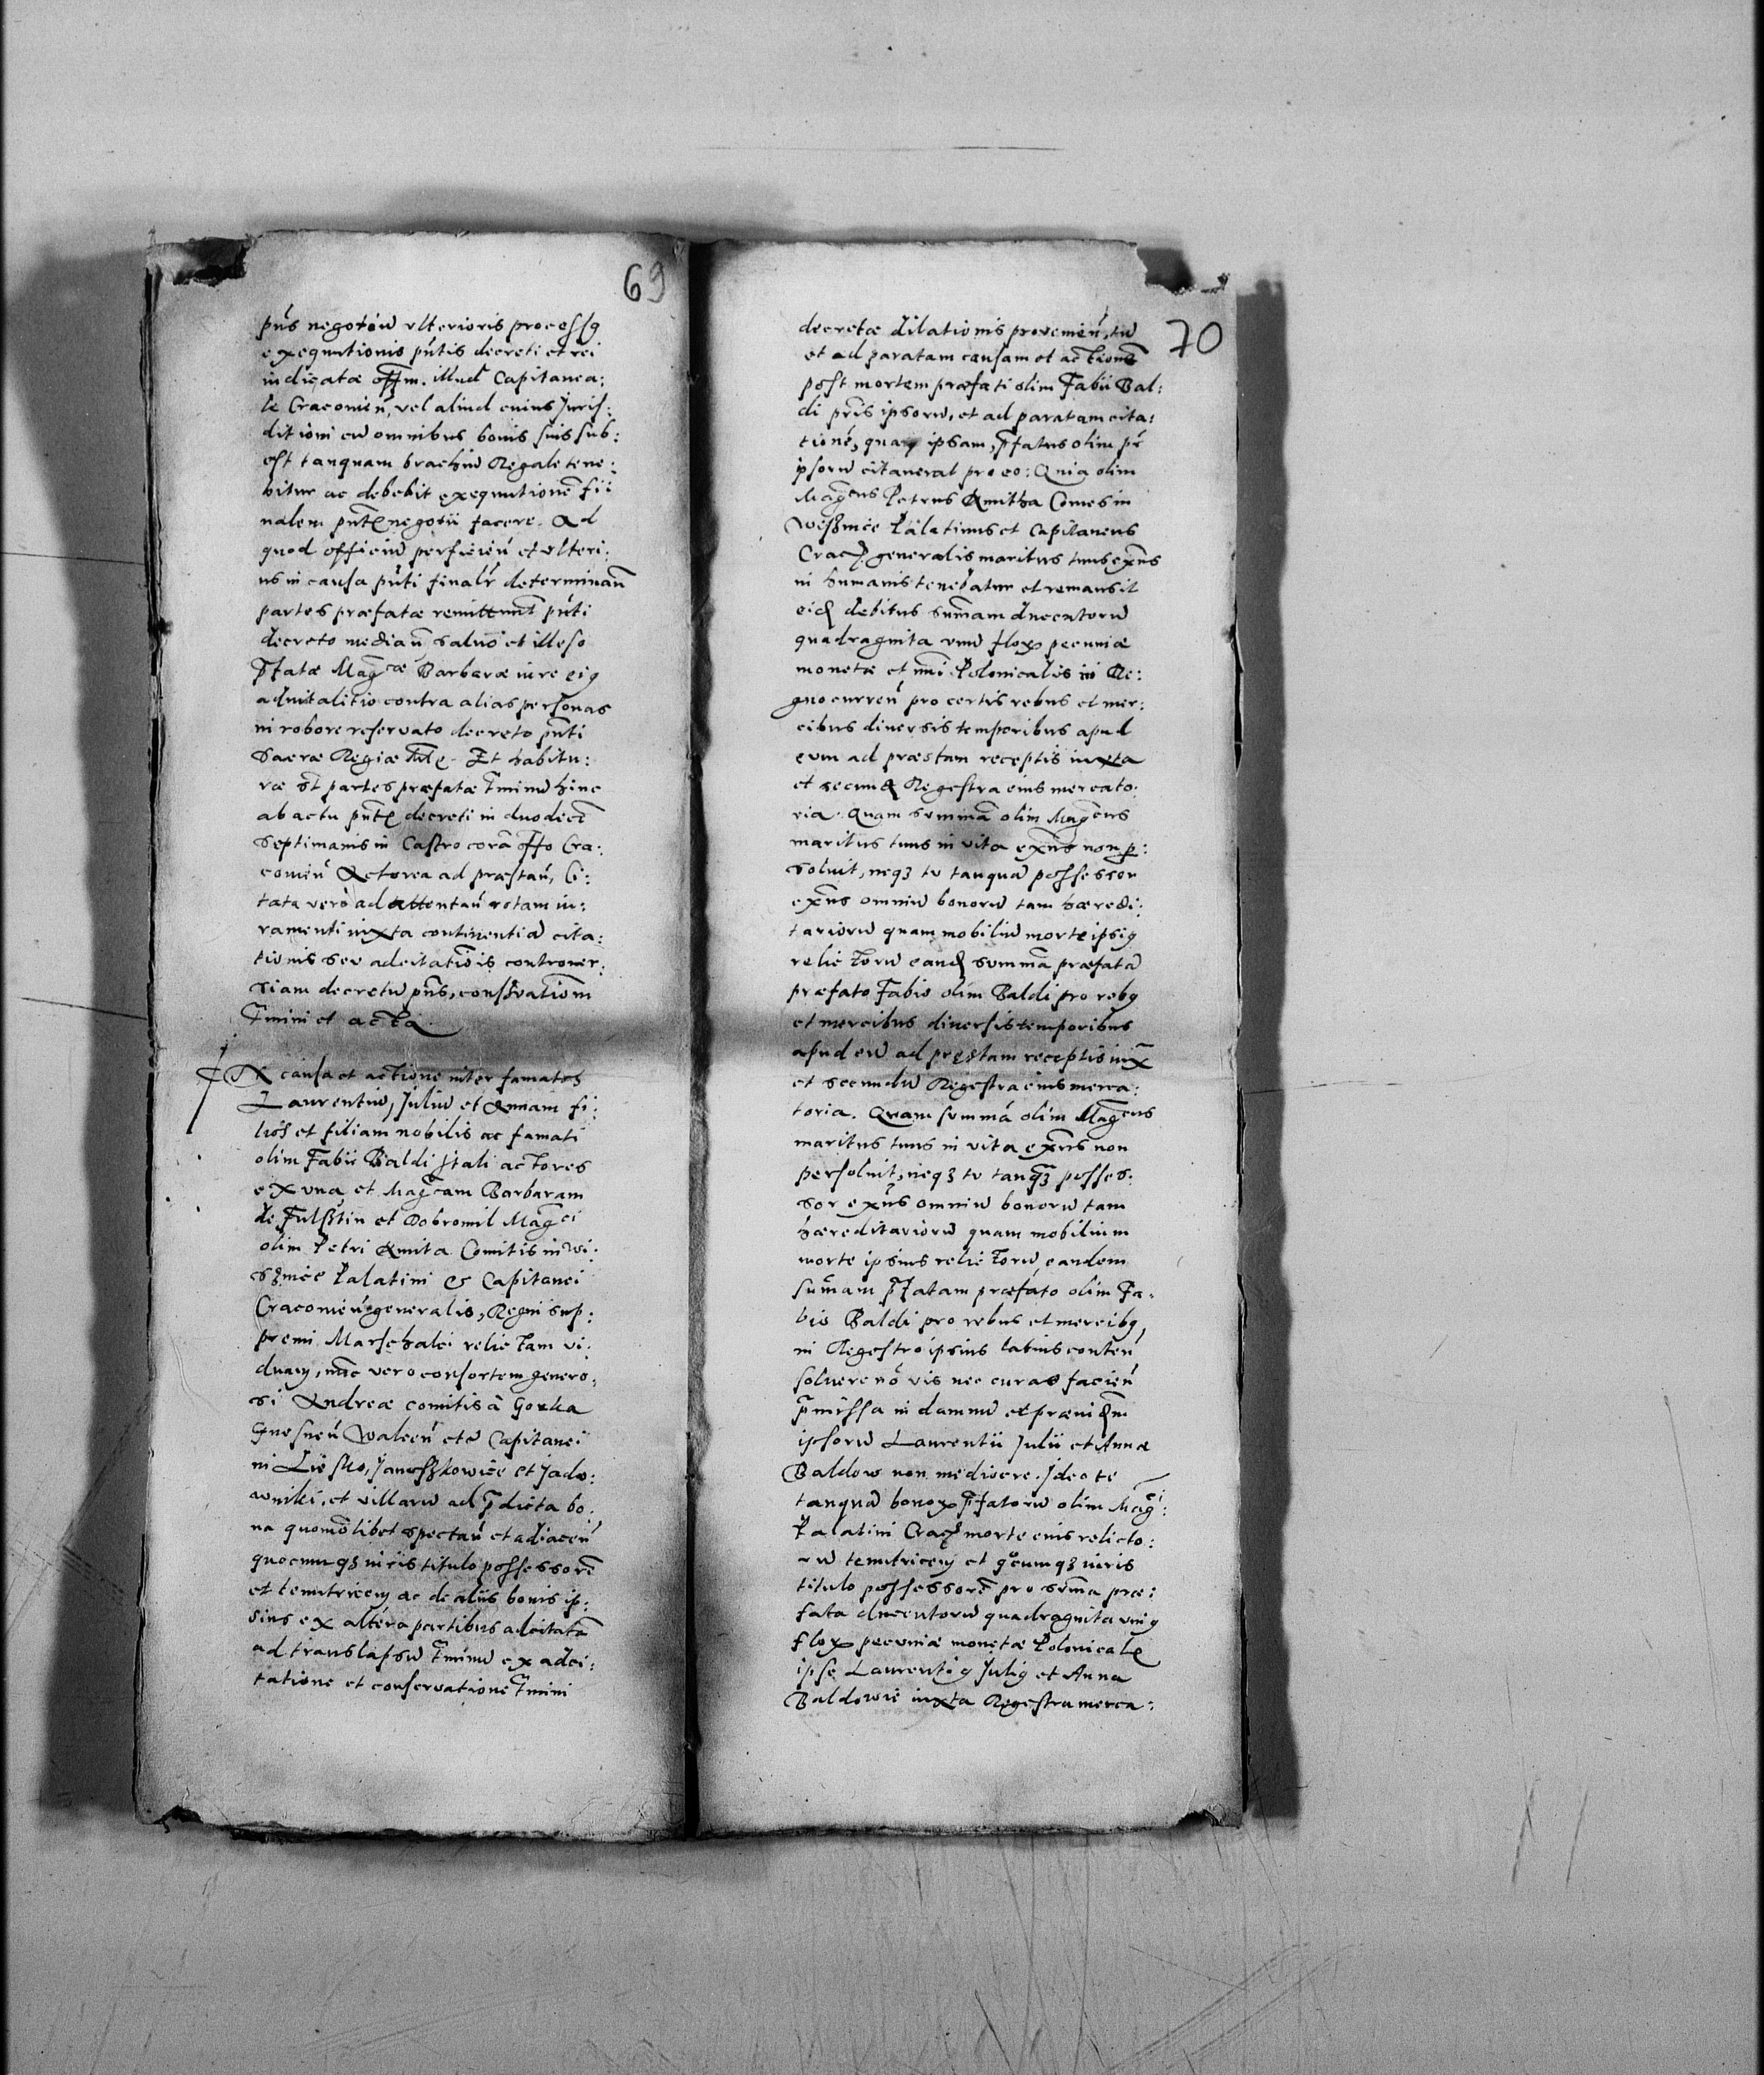 69
pñs negotiũ vlterioris processq
exequutionis pñtis decreti et rei
iudicatæ offm. illud Capitanea:
le Cracovieñ, vel aliud cuius Juris:
ditioni cũ omnibus bonis suis sub:
est tanquam brachiũ Regale tene:
bitur ac debebit exequutionẽ fi:
nalem pñtę negotii facere. Ad
quod officiũ perficieñ et vlteri:
us in causa pñti finalr̃ determinañ
partes præfatæ remittunt pñti
decreto mediañ salvo et illeso
p̃fatæ Magcæ Barbaræ iure eiq
aduitalitio contra alias personas
in robore reservato decreto pñti
Sacræ Regiæ Mtę. Et habitu:
ræ st̃ partes præfatæ t̃minũ hinc
ab actu pñtę decreti in duodecĩ
septimanis in Castro corã offo Cra:
covieñ Actorea ad præstañ, Ci:
tata verò ad attentañ rotam iu:
ramenti iuxta continentiã cita:
tionis seu adcitatiõis controver:
siam decretũ pñs, consr̃vatiom
t̃mini et acta.
IN causa et actione inter famatos
Laurentiũ, Juliũ et Annam fi:
lios et filiam nobilis ac famati
olim Fabii Baldi Itali actores
ex vna, et Magcam Barbaram
de Fulßtin et Dobromil Magci
olim Petri Kmita Comitis in Wi:
sznice Palatini & Capitanei
Cracovieñ generalis, Regni sup:
premi Marschalci relictam vi:
duam, nũc vero consortem genero:
si Andreæ comitis à Gorka
Gnesneñ Walceñ etc̃ Capitanei
in Liesko, Janoszkowice et Jado:
wniki, et villarũ ad p̃dicta bo:
na quomõlibet spectañ et adiaceñ
quocunqз iuris titulo possessorẽ
et tenutricem ac de aliis bonis ip:
sius ex altera partibus adcitatã
ad translapsũ t̃minũ ex adci:
tatione et conservatione t̃mini
70
decretæ dilationis provenieñ, tũ
et ad paratam causam et actionẽ
post mortem præfati olim Fabii Bal:
di pr̃is ipsorũ, et ad paratam cita:
tionẽ, quam ipsam, p̃fatus olim pr̃
ipsorũ citaverat pro eo: Quia olim
Magcus Petrus Kmitha Comes in
Weszmice Palatinus et Capitaneus
Crac̃ generalis maritus tuus exñs
in humanis tenebatur et remansit
eid̃ debitus sum̃am ducentorũ
quadraginta vnũ floꝝ pecuniæ
monetæ et nũi Polonicalis in Re:
gno curreñ pro certis rebus et mer:
cibus diversis temporibus apud
eum ad præstam receptis iuxta
et secund̃ Regestra eius mercato:
ria. Quam summã olim Magcus
maritus tuus in vita exñs non p̱:
soluit, neqз tv tanquã possessor
exñs omniũ bonorũ tam hæredi:
tariorũ quam mobiliũ morte ipsiq
relictorũ eand̃ summã præfatã
præfato Fabio olim Baldi pro rebq
et mercibus diversis temporibus
apud eũ ad pręstam receptis iux̃
et secundũ Regestra eius merca:
toria. Quam summã olim Magcus
maritus tuus in vita exñs non
persoluit, neqз tv tanqз̃ posses:
sor exñs omniũ bonorũ tam
hæreditariorũ quam mobilium
morte ipsius relictorũ, eandem
sum̃am p̃fatam præfato olim Fa:
bio Baldi pro rebus et mercibq,
in Regestro ipsius latius conteñ
soluere nõ vis nec curas facieñ
p̃missa in damnũ et præiud̃m
ipsorũ Laurentii Julii et Annæ
Baldow non mediocre. Ideo te
tanquã bonoꝝ p̃fatorũ olim Magci:
Palatini Crac̃ morte eius relicto:
rũ tenutricem et qcumqз iuris
titulo possessorẽ pro sum̃a præ:
fata ducentorũ quadraginta vniq
floꝝ pecuniæ monetæ Polonicalę
ipse Laurentiq Juliq et Anna
Baldowie iuxta Regestra merca: